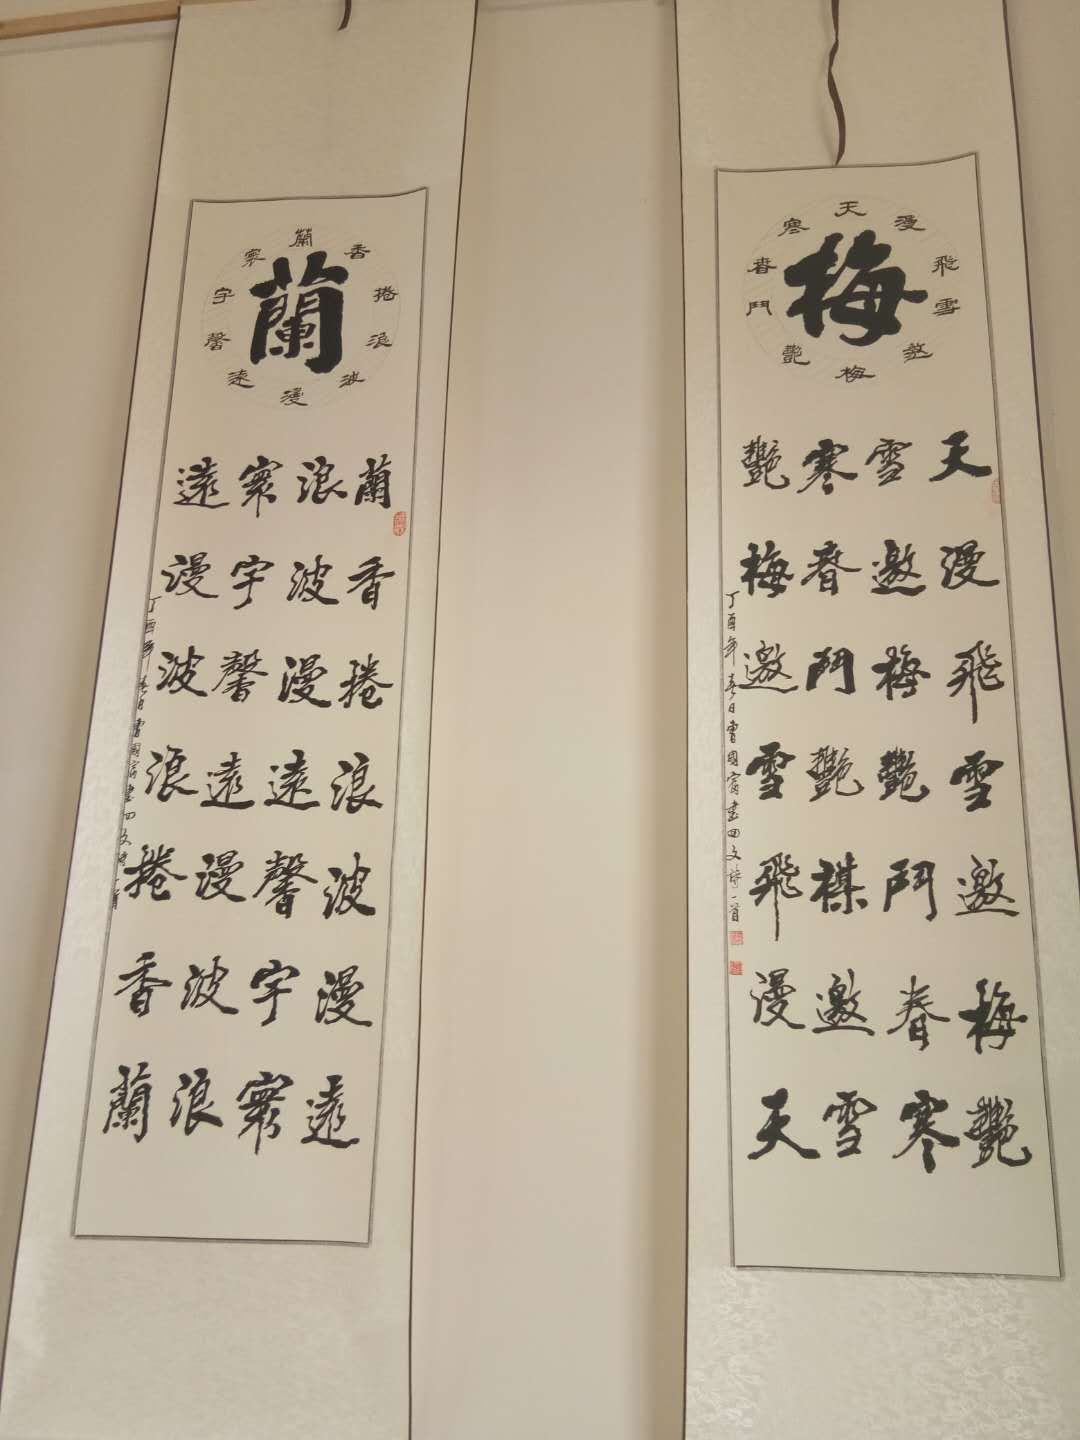 梅
天漫飛雪邀梅艷鬥春寒
天漫飛雪邀梅艷
雪邀梅艷鬥春寒
寒春鬥艷楳邀雪
艷梅邀雪飛漫天
丁酉年春日曹國富書回文詩一首
蘭
蘭香捲浪波漫遠馨宇寰
蘭香捲浪波漫遠
浪波漫遠馨宇寰
寰宇馨遠漫波浪
遠漫波浪捲香蘭
丁酉年春日曹國富書回文詩一首